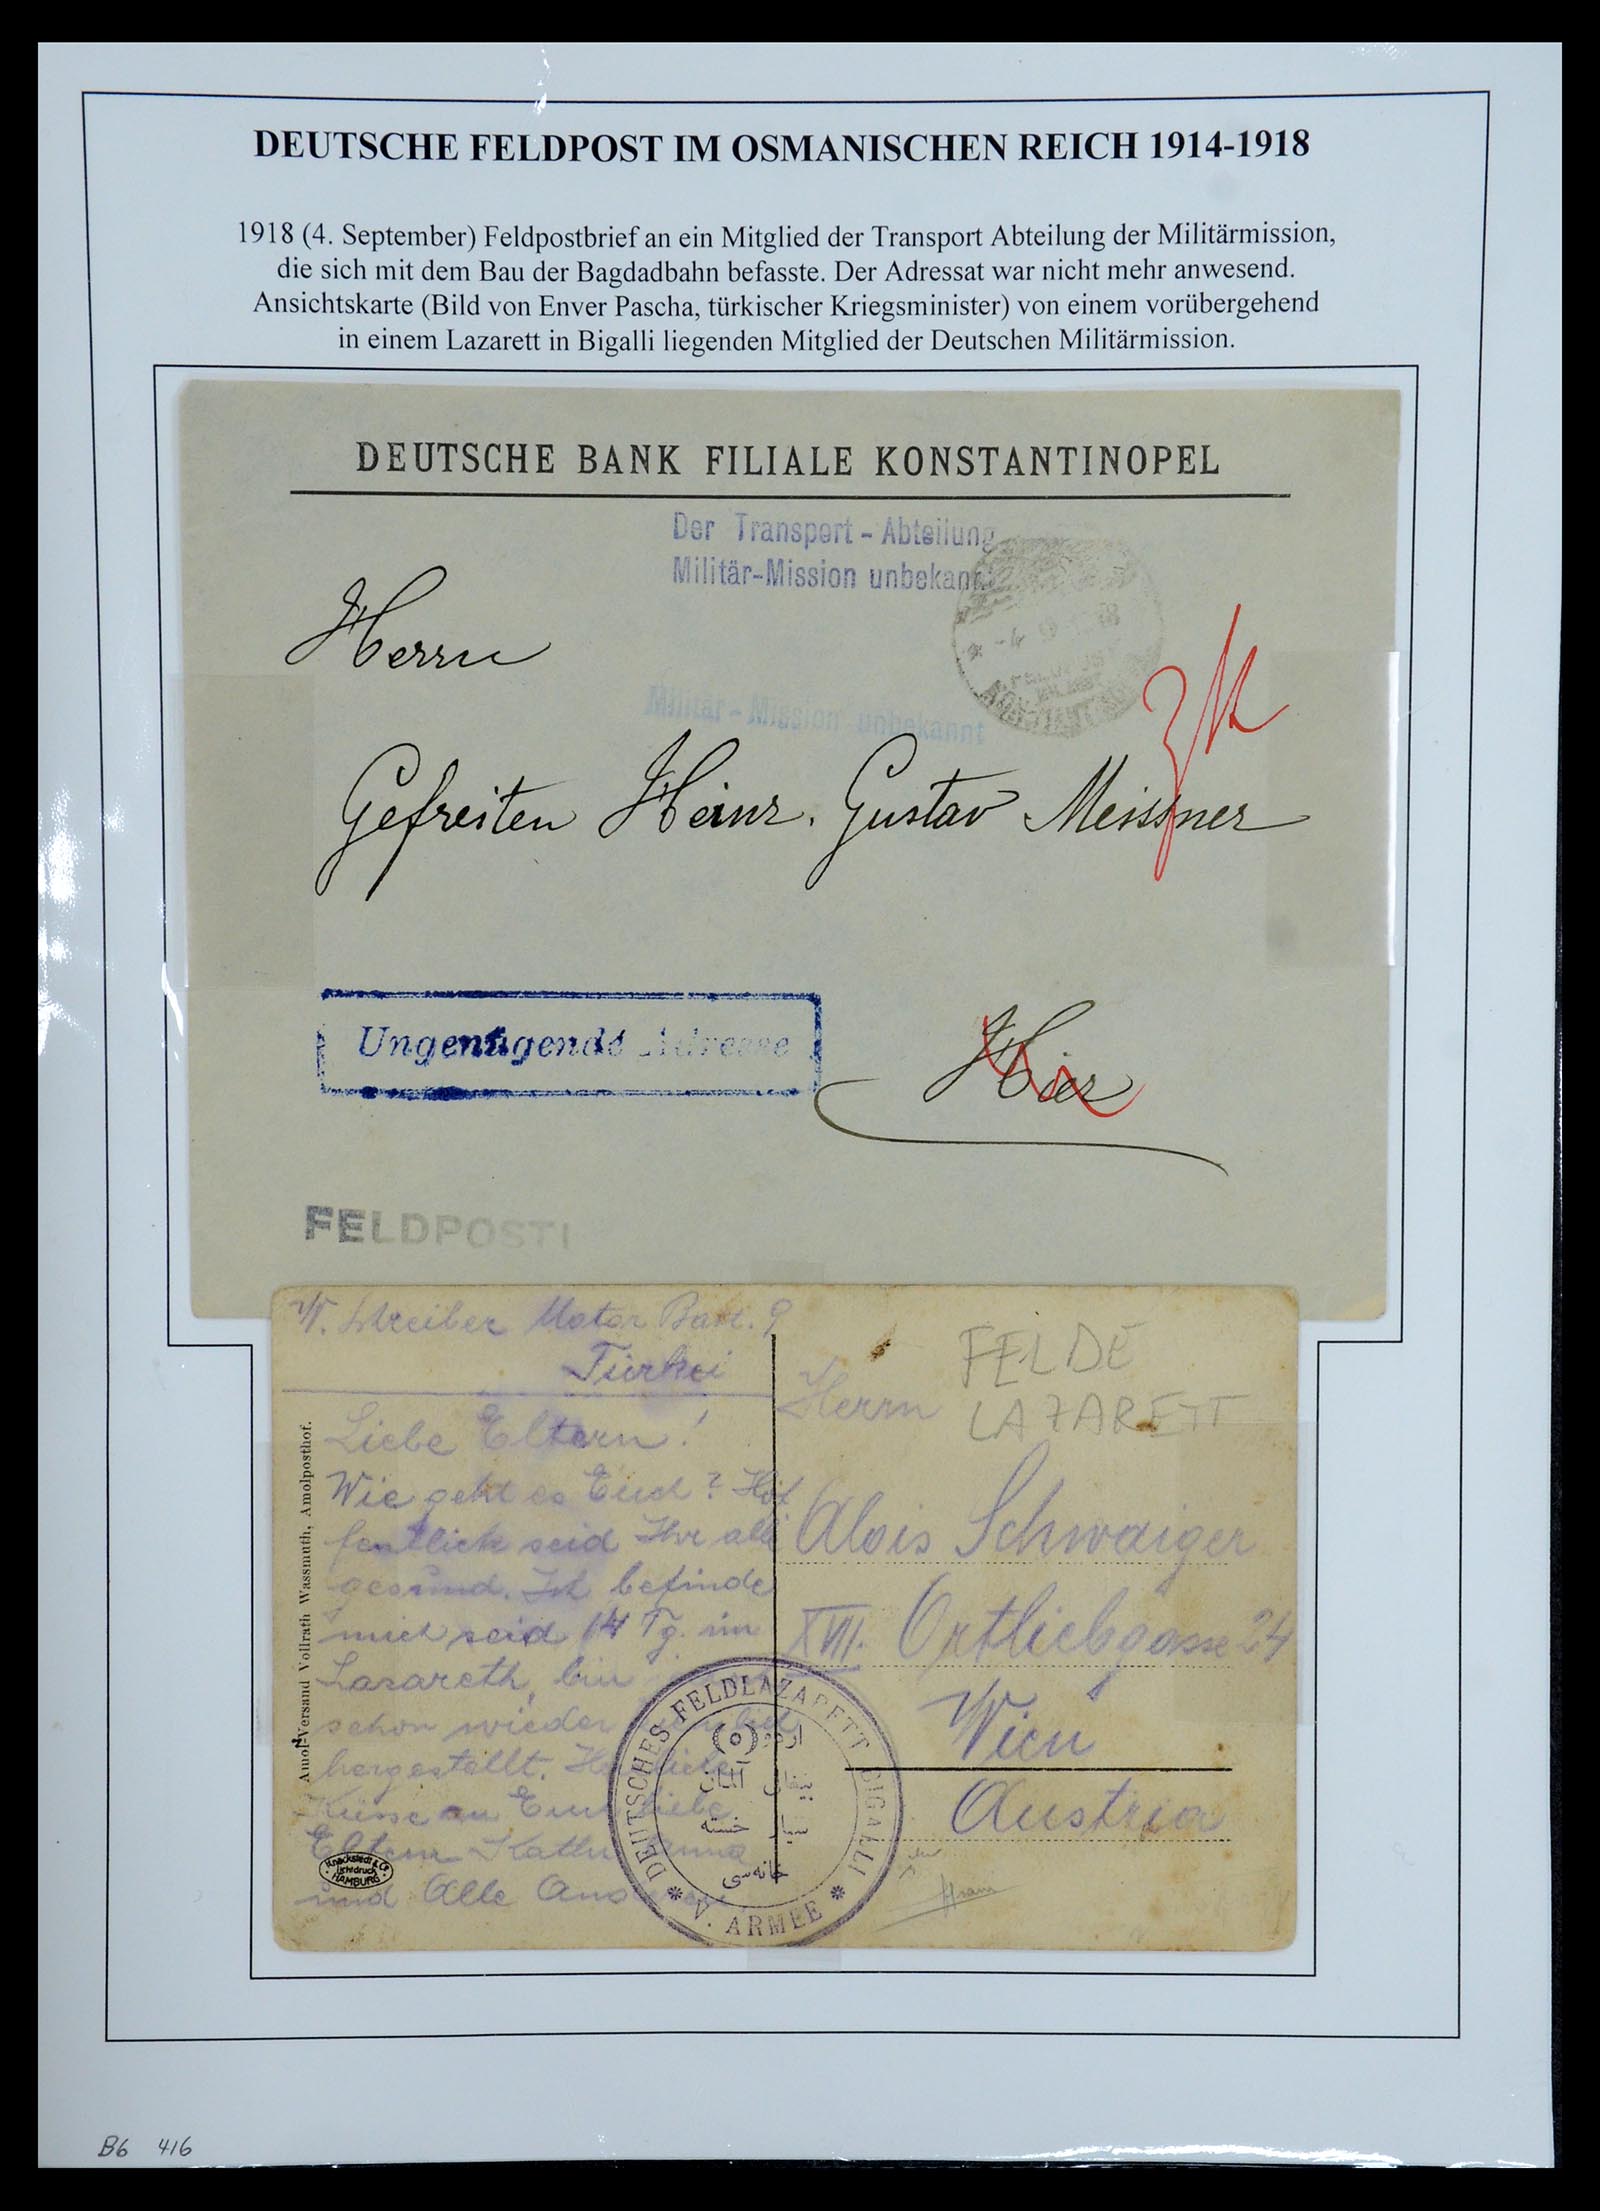 DEUTSCHE FELDPOST IM OSMANISCHEN REICH 1914-1918
1918 (4. September) Feldpostbrief an ein Mitglied der Transport Abteilung der Militärmission,
die sich mit dem Bau der Bagdadbahn befasste. Der Adressat war nicht mehr anwesend.
Ansichtskarte (Bild von Enver Pascha, türkischer Kriegsminister) von einem vorübergehend
in einem Lazarett in Bigalli liegenden Mitglied der Deutschen Militärmission.
DEUTSCHE BANK FILIALE KONSTANTINOPEL
Der Transport - Abteilung
Militär-Mission unbekannt
Herrn
Militär - Mission unbekannt
Gefreiten Heinz. Gustav Meissner
Ungenügende Adresse
Hier
FELDPOST
Schreiber Motor 9
Türkei
Liebe Eltern!
Wie geht es Euch? Hof
fentlich seid Ihr alle
gesund. Ich befinde
mich seid 14 Tg. im
Lazareth, bin
schon wieder
hergestellt.
Küsse an Euch liebe
Eltern
und Alle
Amol-Versand Vollrath Wassmuth, Amolposthof.
Knackstedt & Co
Lichtdruck
HAMBURG
FELDE
LAZARETT
Herrn
Alois Schwaiger
XVII. Ortliebgasse 24
Wien
Austria
DEUTSCHES FELDLAZARETT BIGALLI
V. ARMEE
اردو (٥)
آلمان
سيار خسته
خانه‌سى
B6 416